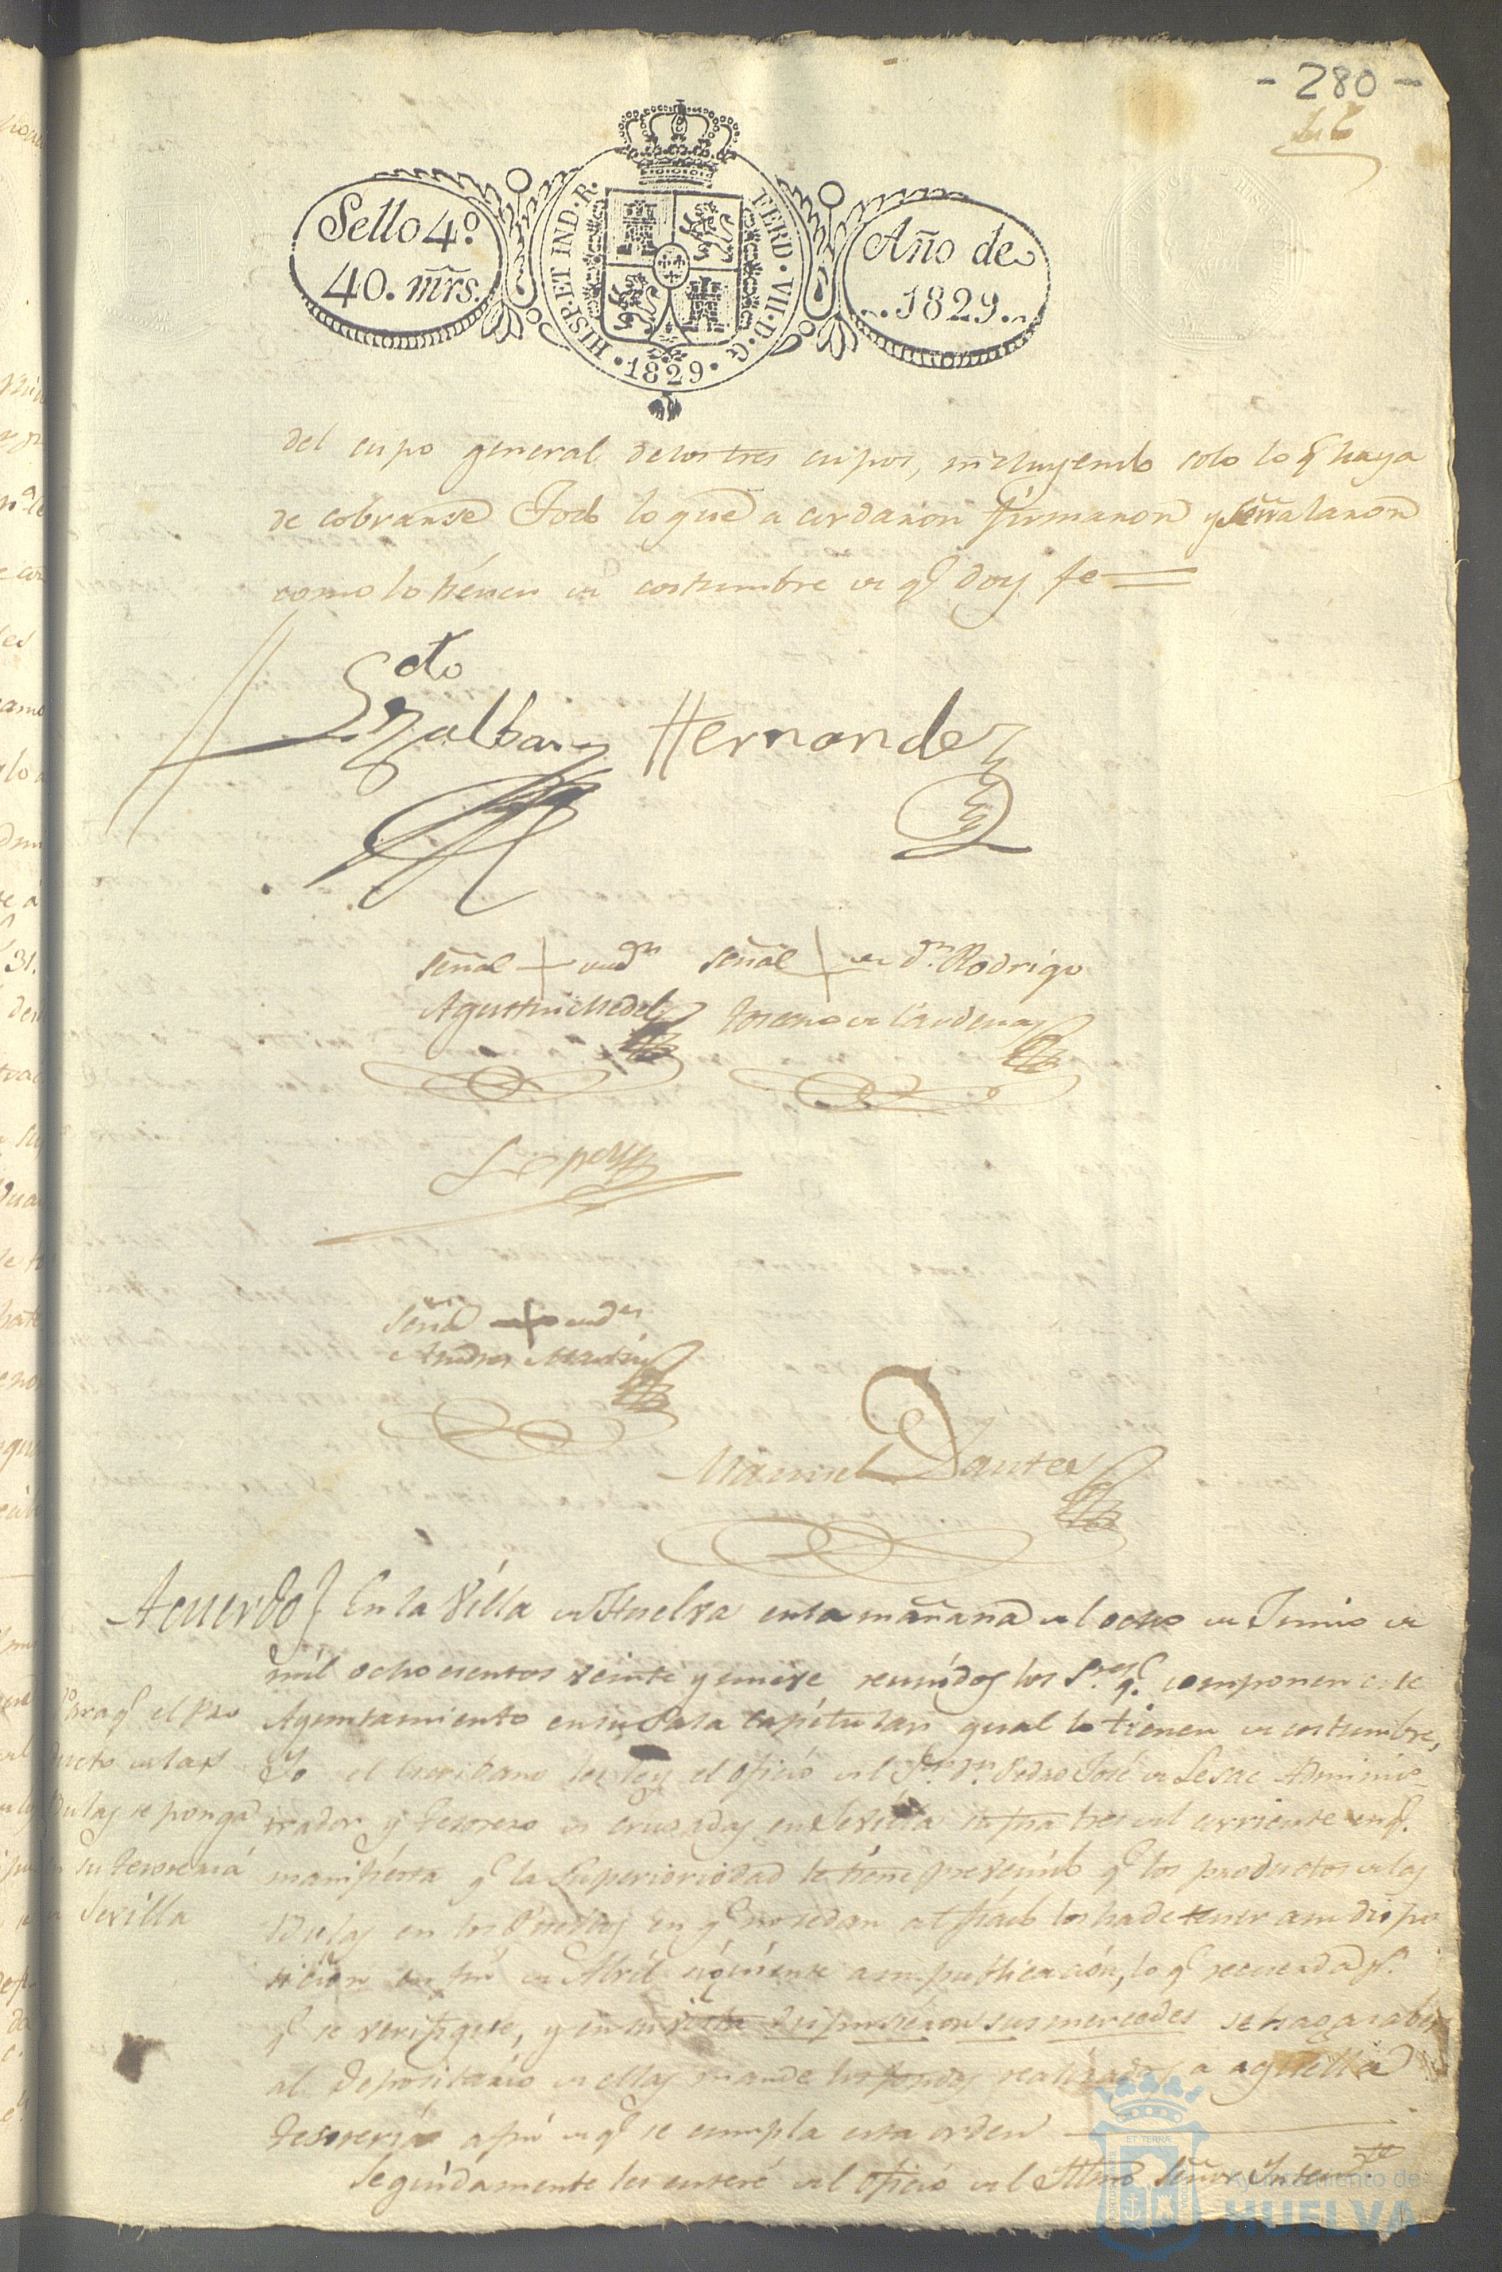 - 280 -
Sello 4º
40. mrs.
HISP. ET IND. R.
FERD. VII. D. G.
1829
Año de
1829
del cupo general de los tres cupos, incluyendo solo lo q.e haya
de cobrarse Todo lo que acordaron firmaron y señalaron
como lo tienen de costumbre de q.e doy fe
Soto
Hernandez
señal + de dn
Agustin Medel
señal + de dn Rodrigo
de Cardenas
Lopez
señal + de dn
Andres Martin
Manuel Dantes
Acuerdo En la Villa de Huelva en la mañana del ocho de Junio de
mil ochocientos veinte y nueve reunidos los S.res q.e componen este
Ayuntamiento en su Sala Capitular qual lo tienen de costumbre,
Yo el Escribano les ley el oficio del S.r d.n Pedro José de Lesac Adminis-
trador y Tesorero de cruzadas en Sevilla su fha tres del corriente en q.e
manifiesta q.e la Superioridad le tiene prevenido q.e los productos de las
Bulas en los Pueblos en q.e no se dan al fiado los ha de tener a su dispo
sicion en fin de Abril siguiente a su publicación, lo q.e recuerda p.a
q.e se verifiqe, y en su vista dispusieron sus mercedes se haga saber
al Depositario de ellas mande los fondos realizados a aquella
Tesoreria a fin de q.e se cumpla esta orden
Seguidamente les enteré del oficio del Illmo Señor Intend.te
para q.e el pro
ducto de las
Bulas se ponga
en su tesoreria
de Sevilla
ET TERRÆ
Ayuntamiento de
HUELVA